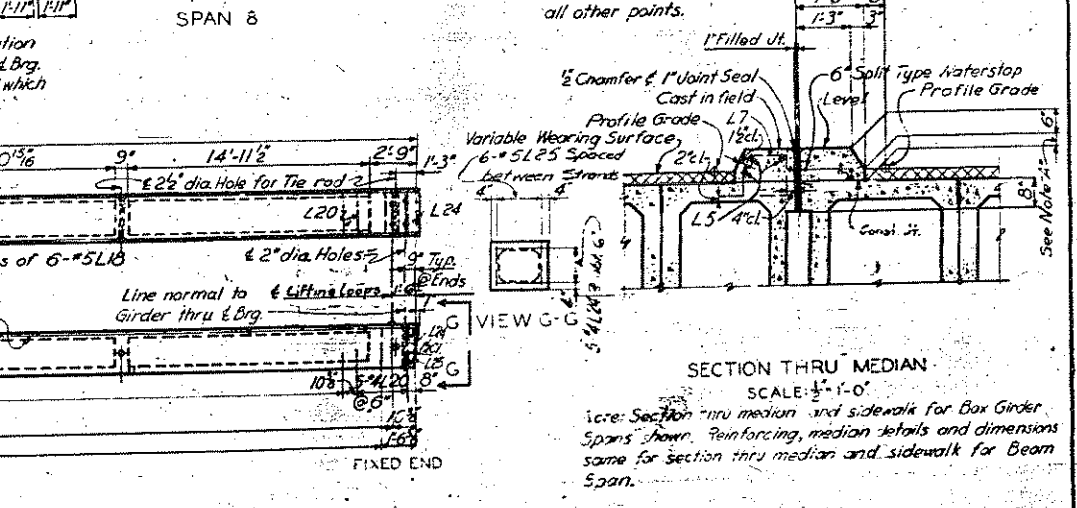 1'-11" 1'-11"
SPAN 8
all other points.
1'-3" 3"
1" Filled Jt.
½" Chamfer & 1" Joint Seal
Cast in field
6" Split Type Waterstop
Level
Profile Grade
Profile Grade
L7
1½"cl.
Variable Wearing Surface
2"cl.
6-#5L25 Spaced
between Strands
4" 4"
6"
8"
See Note "A"
L5
4"cl.
Const. Jt.
& Brg.
which
0 15/16" 9" 14'-11½" 2'-9" 1'-3"
℄ 2½" dia. Hole for Tie rod
L20
L24
s of 6-#5L18
℄ 2" dia. Holes
9" Typ.
@ Ends
Line normal to
Girder thru ℄ Brg.
℄ Lifting Loops
1'-6"
1"
G
G
VIEW G-G
L25
10⅝"
5-#4L20
@ 6"
8"
FIXED END
SECTION THRU MEDIAN
SCALE: ½"=1'-0"
Note: Section thru median and sidewalk for Box Girder
Spans shown. Reinforcing, median details and dimensions
same for section thru median and sidewalk for Beam
Span.